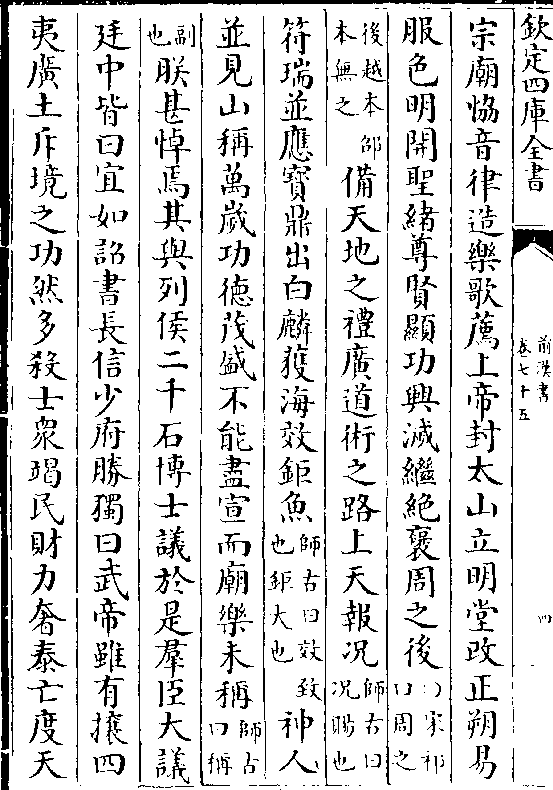 欽定四庫全書
前漢書
卷七十五
四
宗廟恊音律造樂歌薦上帝封太山立明堂改正朔易
服色明開聖緒尊賢顯功興滅繼絶襃周之後宋祁曰周之
後越本邵本無之備天地之禮廣道術之路上天報况師古曰况賜也
符瑞並應寶鼎出白麟獲海效鉅魚師古曰效致也鉅大也神人
並見山稱萬歲功德茂盛不能盡宣而廟樂未稱師古曰稱
副也朕甚悼焉其與列侯二千石博士議於是羣臣大議
廷中皆曰宜如詔書長信少府勝獨曰武帝雖有攘四
夷廣土斥境之功然多殺士衆竭民財力奢泰亡度天